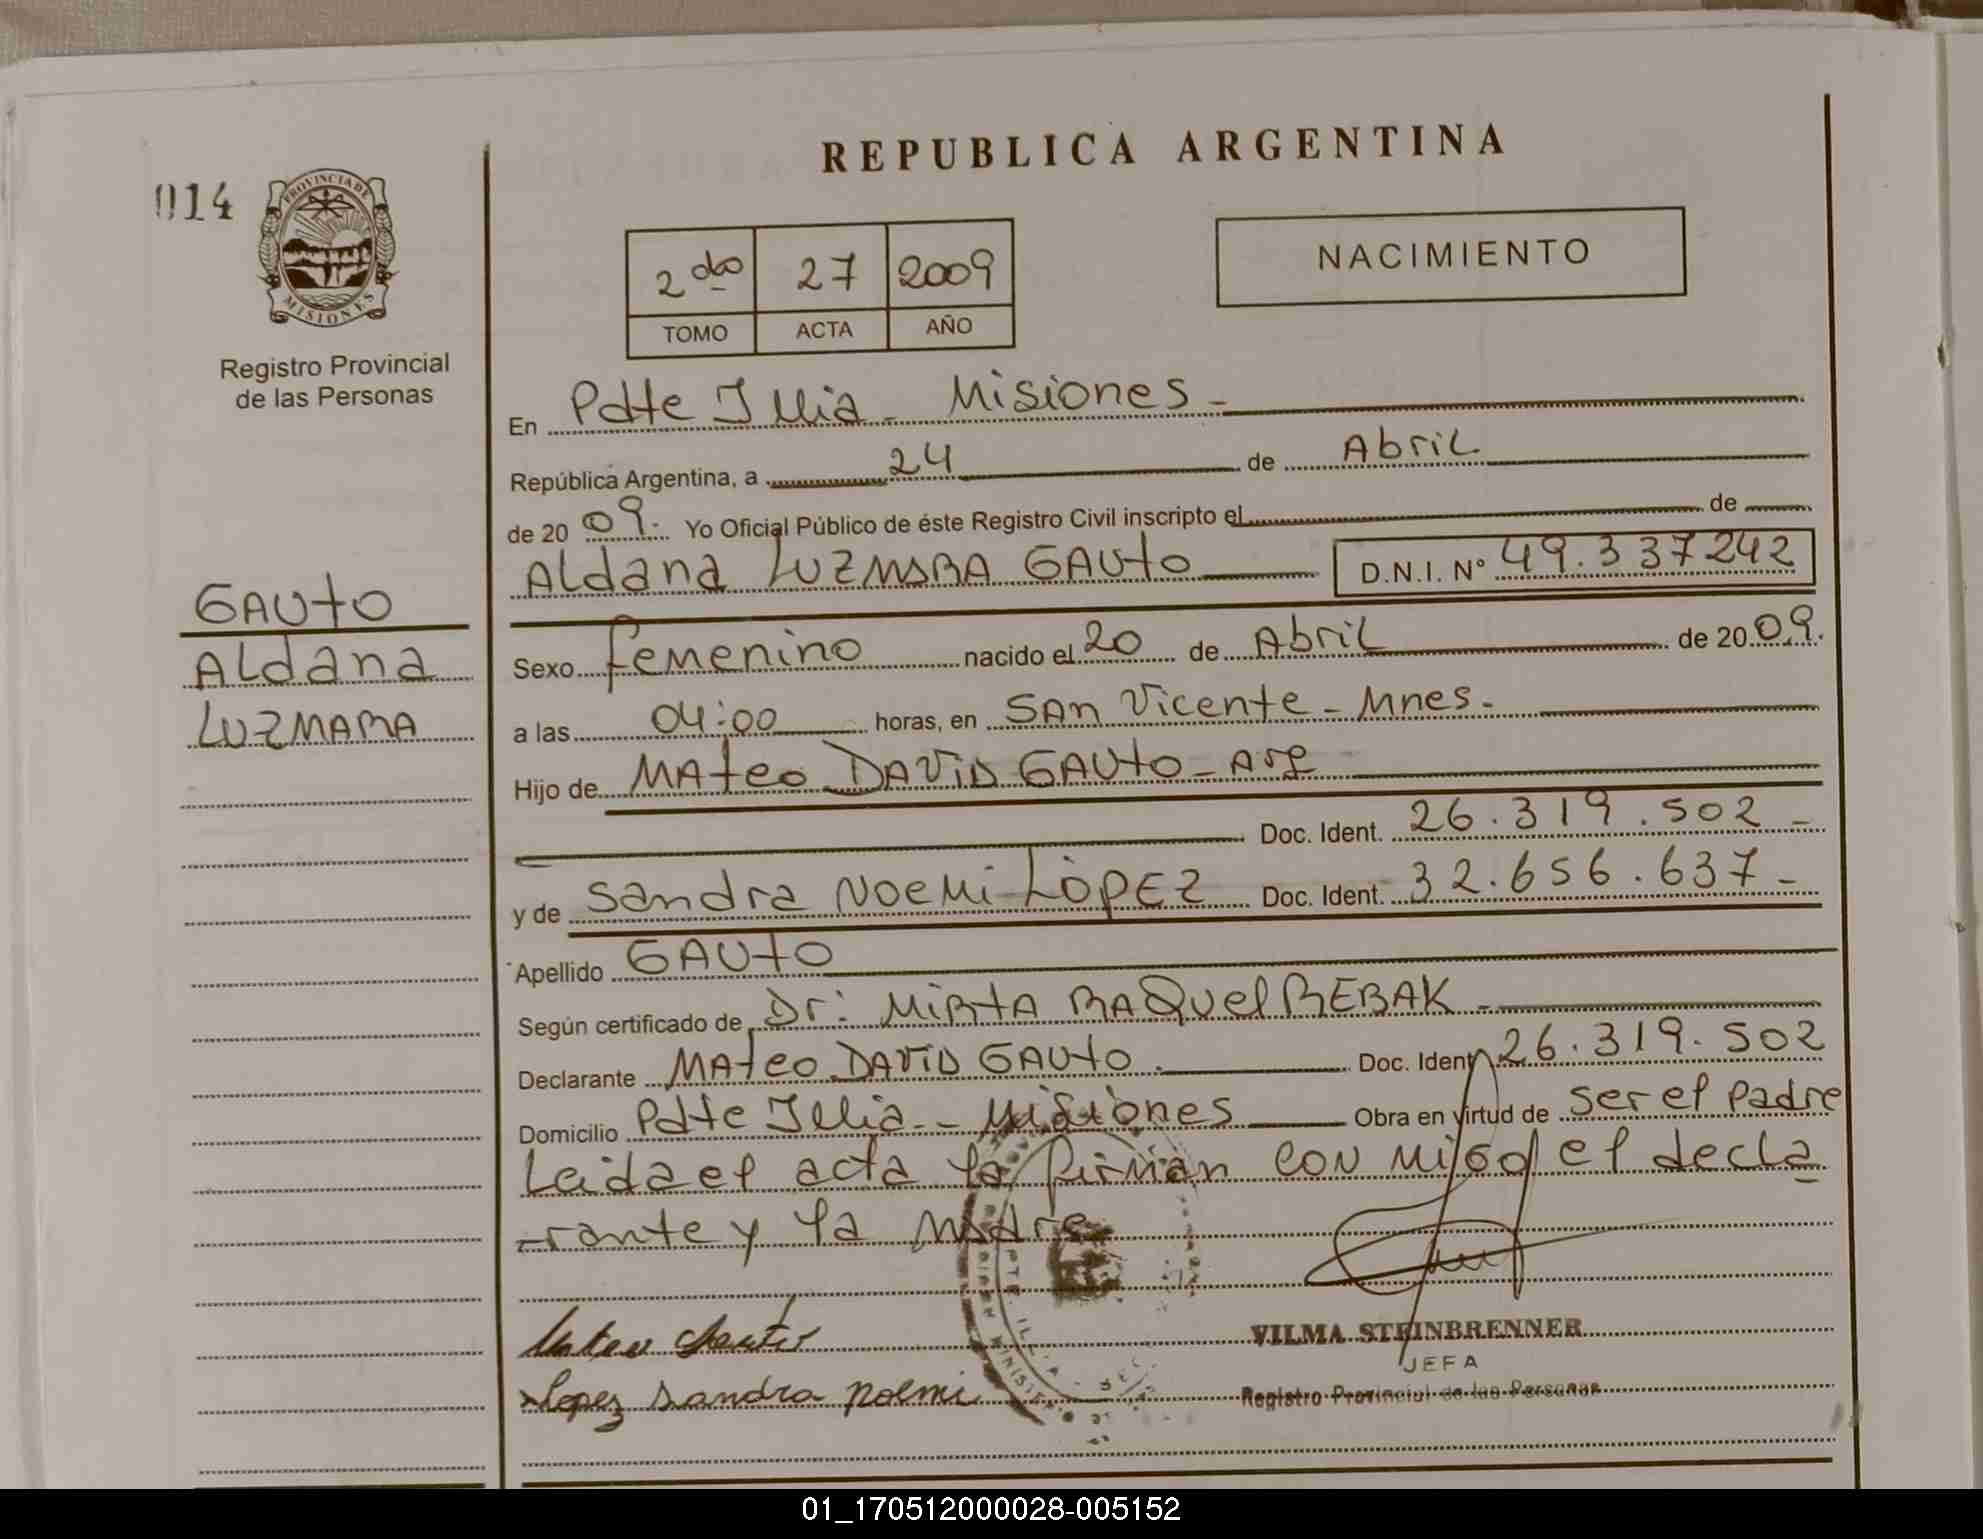 REPUBLICA ARGENTINA
014
PROVINCIA DE
MISIONES
Registro Provincial
de las Personas
NACIMIENTO
2do 27 2009
TOMO ACTA AÑO
En Pdte Illia - Misiones -
República Argentina, a 24 de Abril
de 2009. Yo Oficial Público de éste Registro Civil inscripto el de
Aldana LUZMARA GAUTO D.N.I. N° 49.337242
GAUTO
Aldana
LUZMARA
Sexo femenino nacido el 20 de Abril de 2009.
a las 04:00 horas, en SAn Vicente - Mnes.
Hijo de MAteo DAViD GAUto - Arg
Doc. Ident. 26.319.502 -
y de Sandra NOEMi LÒPEZ Doc. Ident. 32.656.637 -
Apellido GAUTO
Según certificado de Dr: MiRtA RAQUel REBAK -
Declarante MAteo DAViD GAUto. Doc. Ident 26.319.502
Domicilio Pdte Illia - Misiones Obra en virtud de ser el padre
Leida el acta la firman con migo el decla
rante y la madre
Mateo Gauto
Lopez Sandra noemi
PTE. ILLIA
VILMA STEINBRENNER
JEFA
Registro Provincial de las Personas
01_170512000028-005152